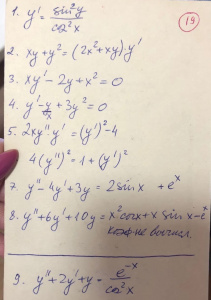 19
1. y' = sin²y / cos²x
2. xy + y² = (2x² + xy) y'
3. xy' - 2y + x² = 0
4. y' - y/x + 3y² = 0
5. 2xy''·y' = (y')² - 4
4(y'')² = 1 + (y')²
7. y'' - 4y' + 3y = 2 sin x + eˣ
8. y'' + 6y' + 10y = x² cos x + x sin x - eˣ
не
9. y'' + 2y' + y = e⁻ˣ / cos²x